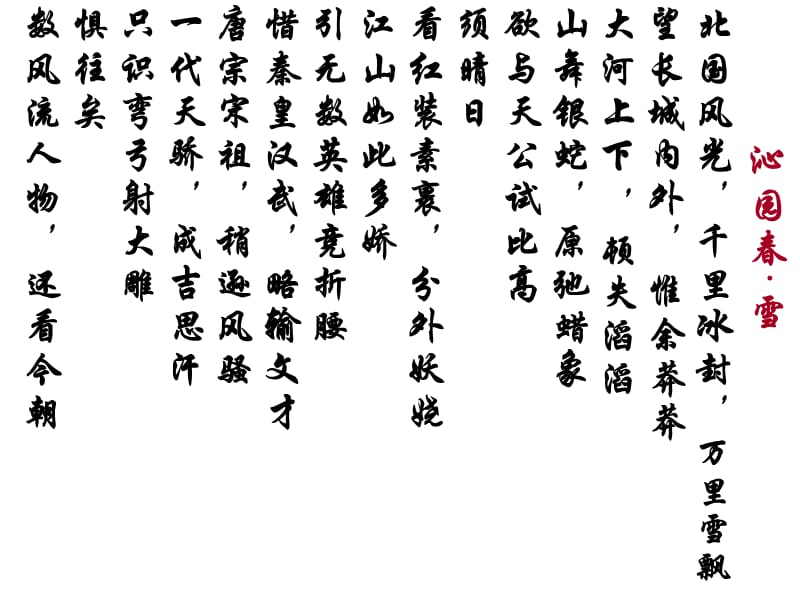 沁园春·雪
北国风光，千里冰封，万里雪飘
望长城内外，惟余莽莽
大河上下，顿失滔滔
山舞银蛇，原弛蜡象
欲与天公试比高
须晴日
看红装素裹，分外妖娆
江山如此多娇
引无数英雄竞折腰
惜秦皇汉武，略输文才
唐宗宋祖，稍逊风骚
一代天骄，成吉思汗
只识弯弓射大雕
惧往矣
数风流人物，还看今朝